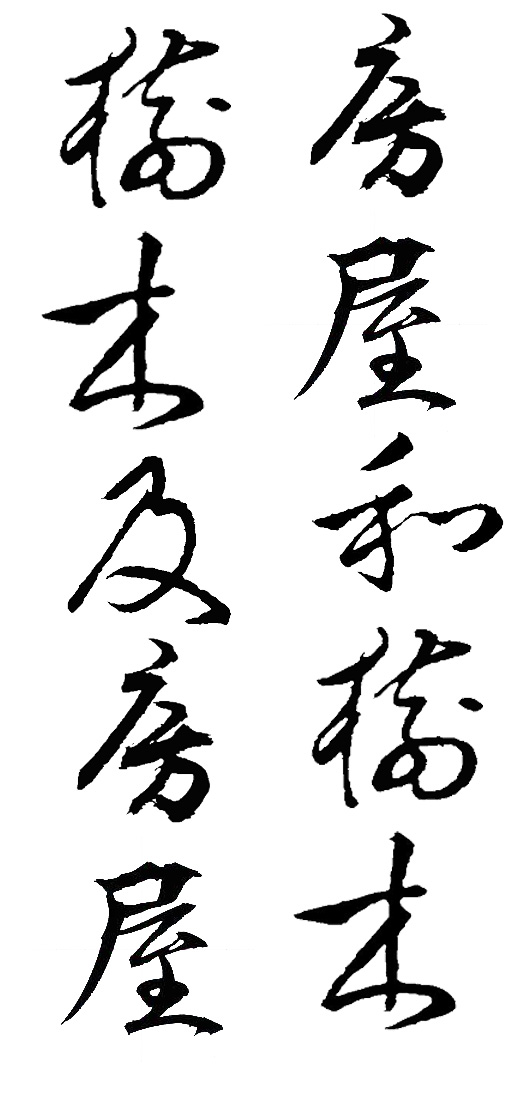 房屋和榆木
榆木及房屋